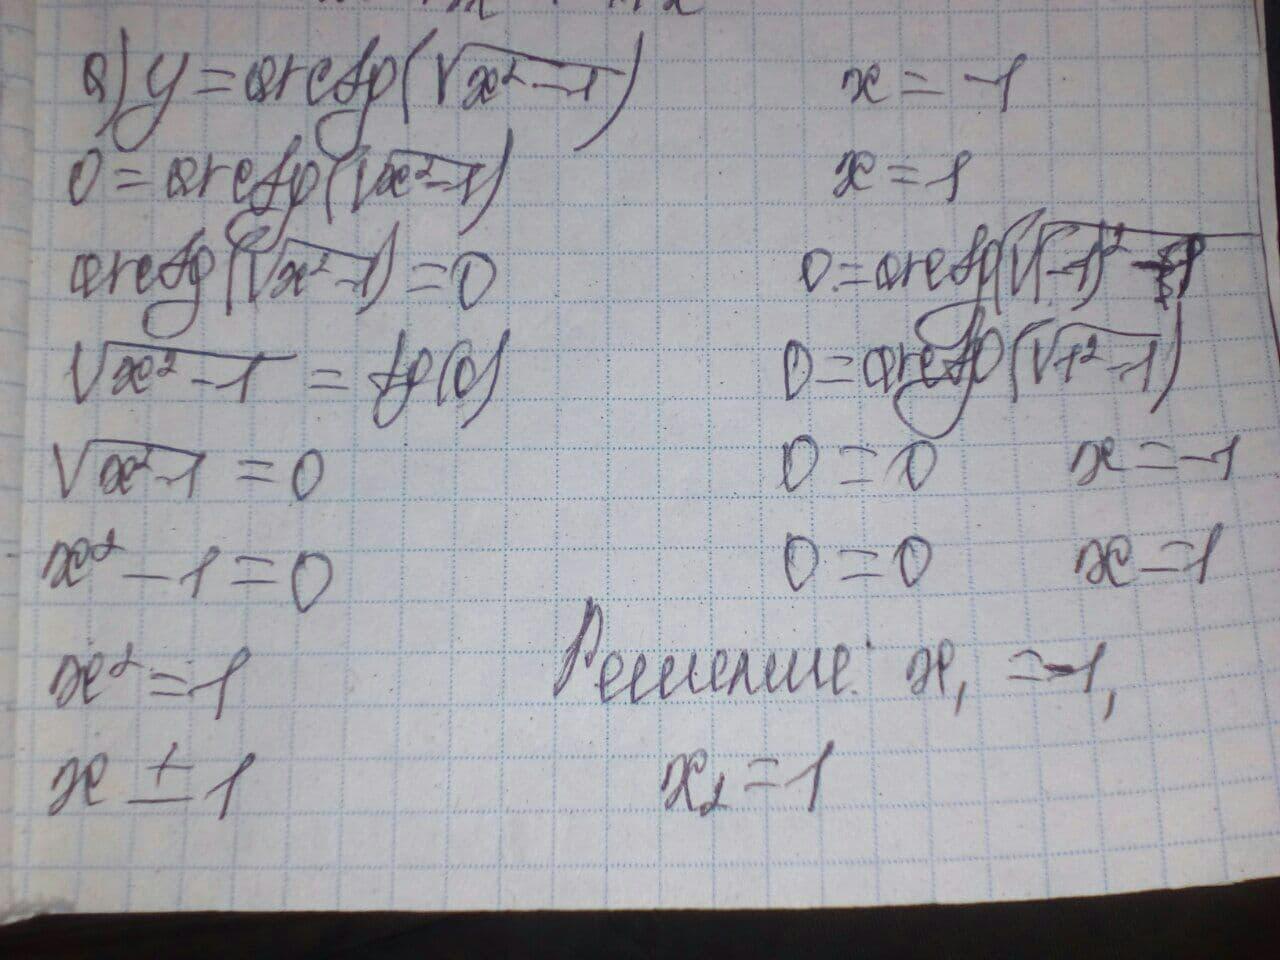 a) y = arctg(√x² - 1)
0 = arctg(√x² - 1)
arctg(√x² - 1) = 0
√x² - 1 = tg(0)
√x² - 1 = 0
x² - 1 = 0
x² = 1
x ± 1
x = -1
x = 1
0 = arctg(√(-1)² - 1
0 = arctg(√1² - 1)
0 = 0 x = -1
0 = 0 x = 1
Решение: x₁ = -1,
x₂ = 1